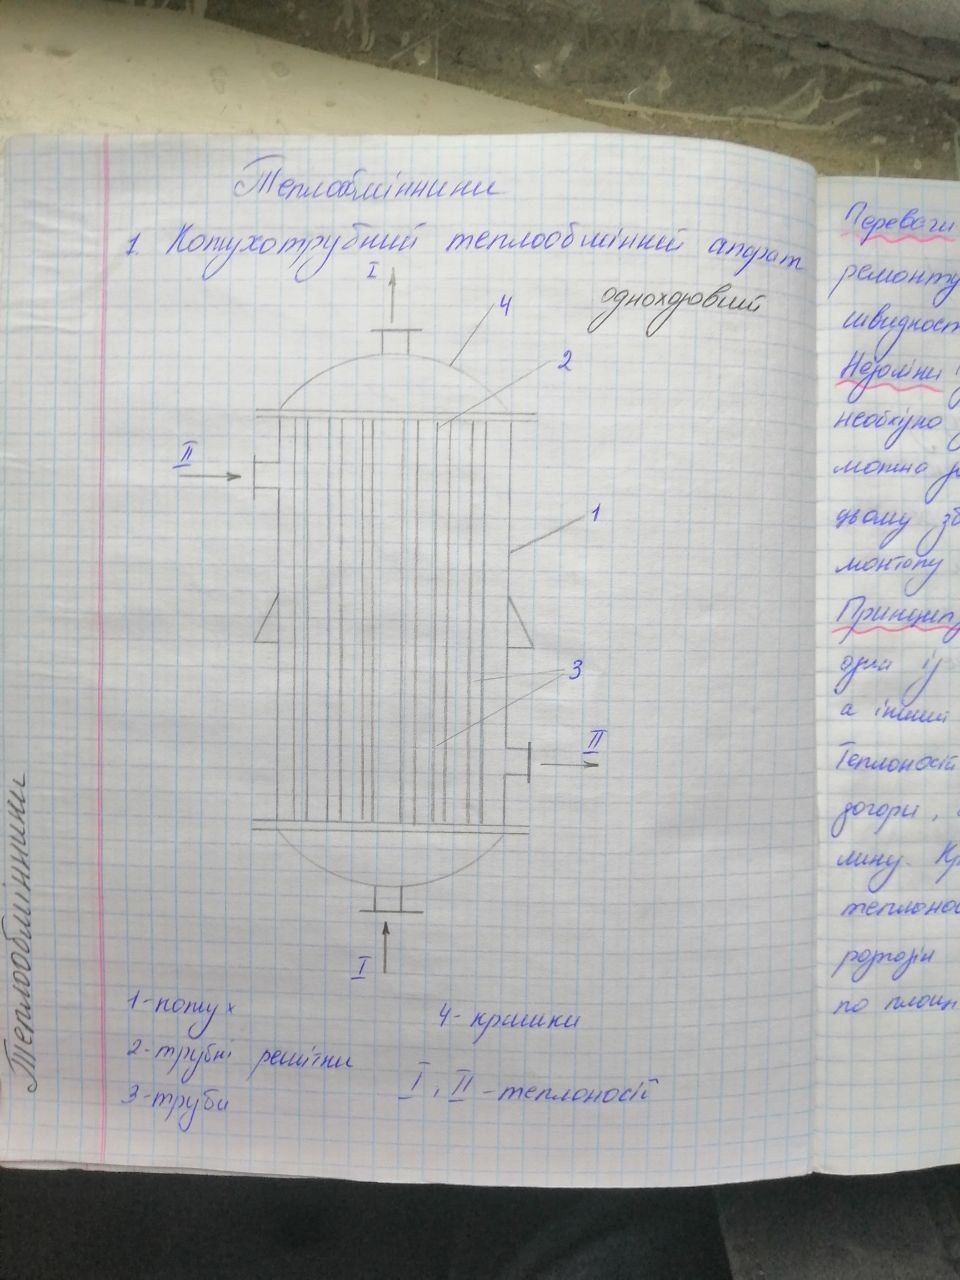 Теплообмінники
1. Кожухотрубний теплообмінний апарат
одноходовий
I
4
2
II
1
3
II
I
1-кожух
4- кришки
2-трубні решітки
3-труби
I, II - теплоносії
Теплообмінники
Переваги
ремонту
швидкост
Недоліки
необхідно
можна
цьому зб
монтажу
Принцип
один із
а інший
Теплоносій
догори,
лину. Кр
теплонос
розподіл
по площ